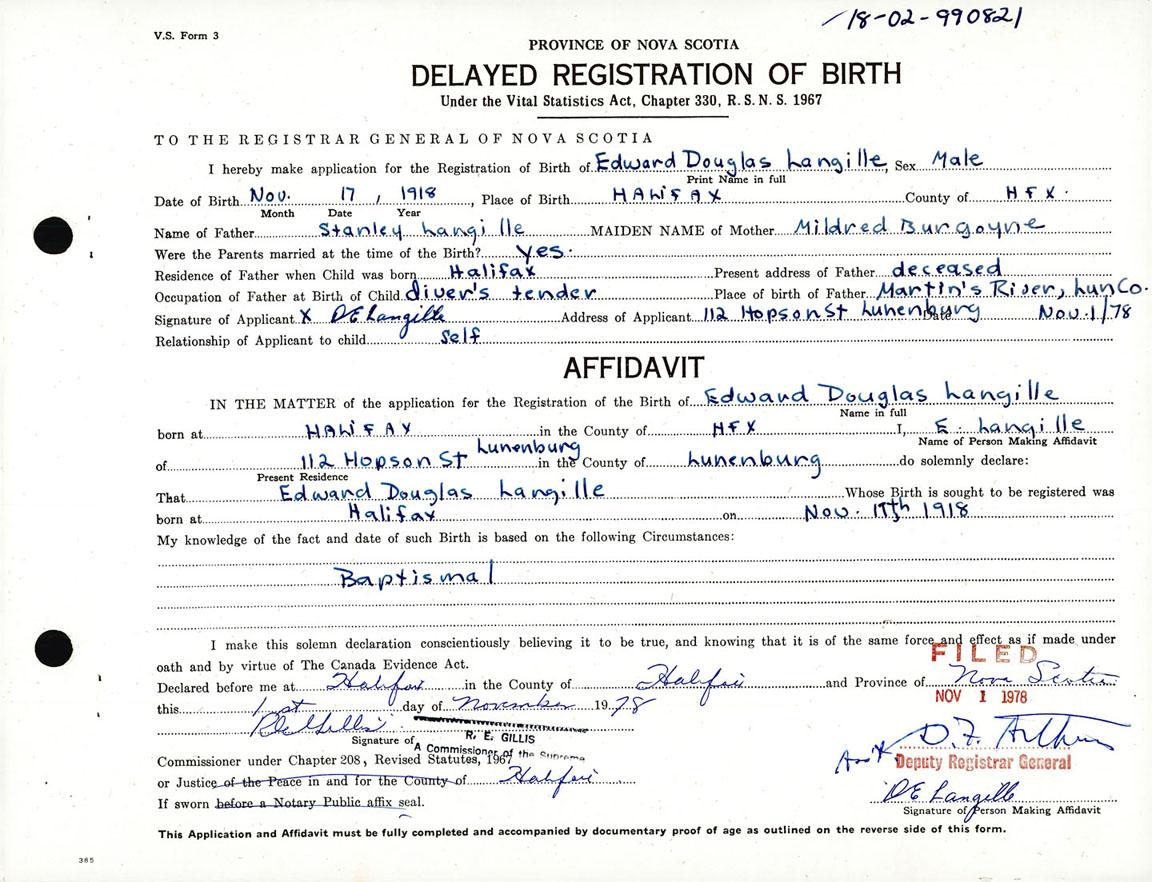 18-02-990821
V.S. Form 3
PROVINCE OF NOVA SCOTIA
DELAYED REGISTRATION OF BIRTH
Under the Vital Statistics Act, Chapter 330, R.S.N.S. 1967
TO THE REGISTRAR GENERAL OF NOVA SCOTIA
I hereby make application for the Registration of Birth of Edward Douglas Langille, Sex Male
Print Name in full
Date of Birth Nov. 17, 1918, Place of Birth HALIFAX County of HFX.
Month Date Year
Name of Father Stanley Langille MAIDEN NAME of Mother Mildred Burgoyne
Were the Parents married at the time of the Birth? Yes.
Residence of Father when Child was born Halifax Present address of Father deceased
Occupation of Father at Birth of Child diver's tender Place of birth of Father Martin's River, Lun Co.
Signature of Applicant X DE Langille Address of Applicant 112 Hopson St Lunenburg Date Nov. 1/78
Relationship of Applicant to child self
AFFIDAVIT
IN THE MATTER of the application for the Registration of the Birth of Edward Douglas Langille
Name in full
born at HALIFAX in the County of HFX I, E. Langille
Name of Person Making Affidavit
of 112 Hopson St Lunenburg in the County of Lunenburg do solemnly declare:
Present Residence
That Edward Douglas Langille Whose Birth is sought to be registered was
born at Halifax on Nov. 17th 1918
My knowledge of the fact and date of such Birth is based on the following Circumstances:
Baptismal
I make this solemn declaration conscientiously believing it to be true, and knowing that it is of the same force and effect as if made under
oath and by virtue of The Canada Evidence Act.
FILED
Declared before me at Halifax in the County of Halifax and Province of Nova Scotia
this 1st day of November 1978
NOV 1 1978
R E Gillis
Signature of
R. E. GILLIS
A Commissioner of the Supreme
Commissioner under Chapter 208, Revised Statutes, 1967
D. F. Arthur
Deputy Registrar General
or Justice of the Peace in and for the County of Halifax
If sworn before a Notary Public affix seal.
DE Langille
Signature of Person Making Affidavit
This Application and Affidavit must be fully completed and accompanied by documentary proof of age as outlined on the reverse side of this form.
385